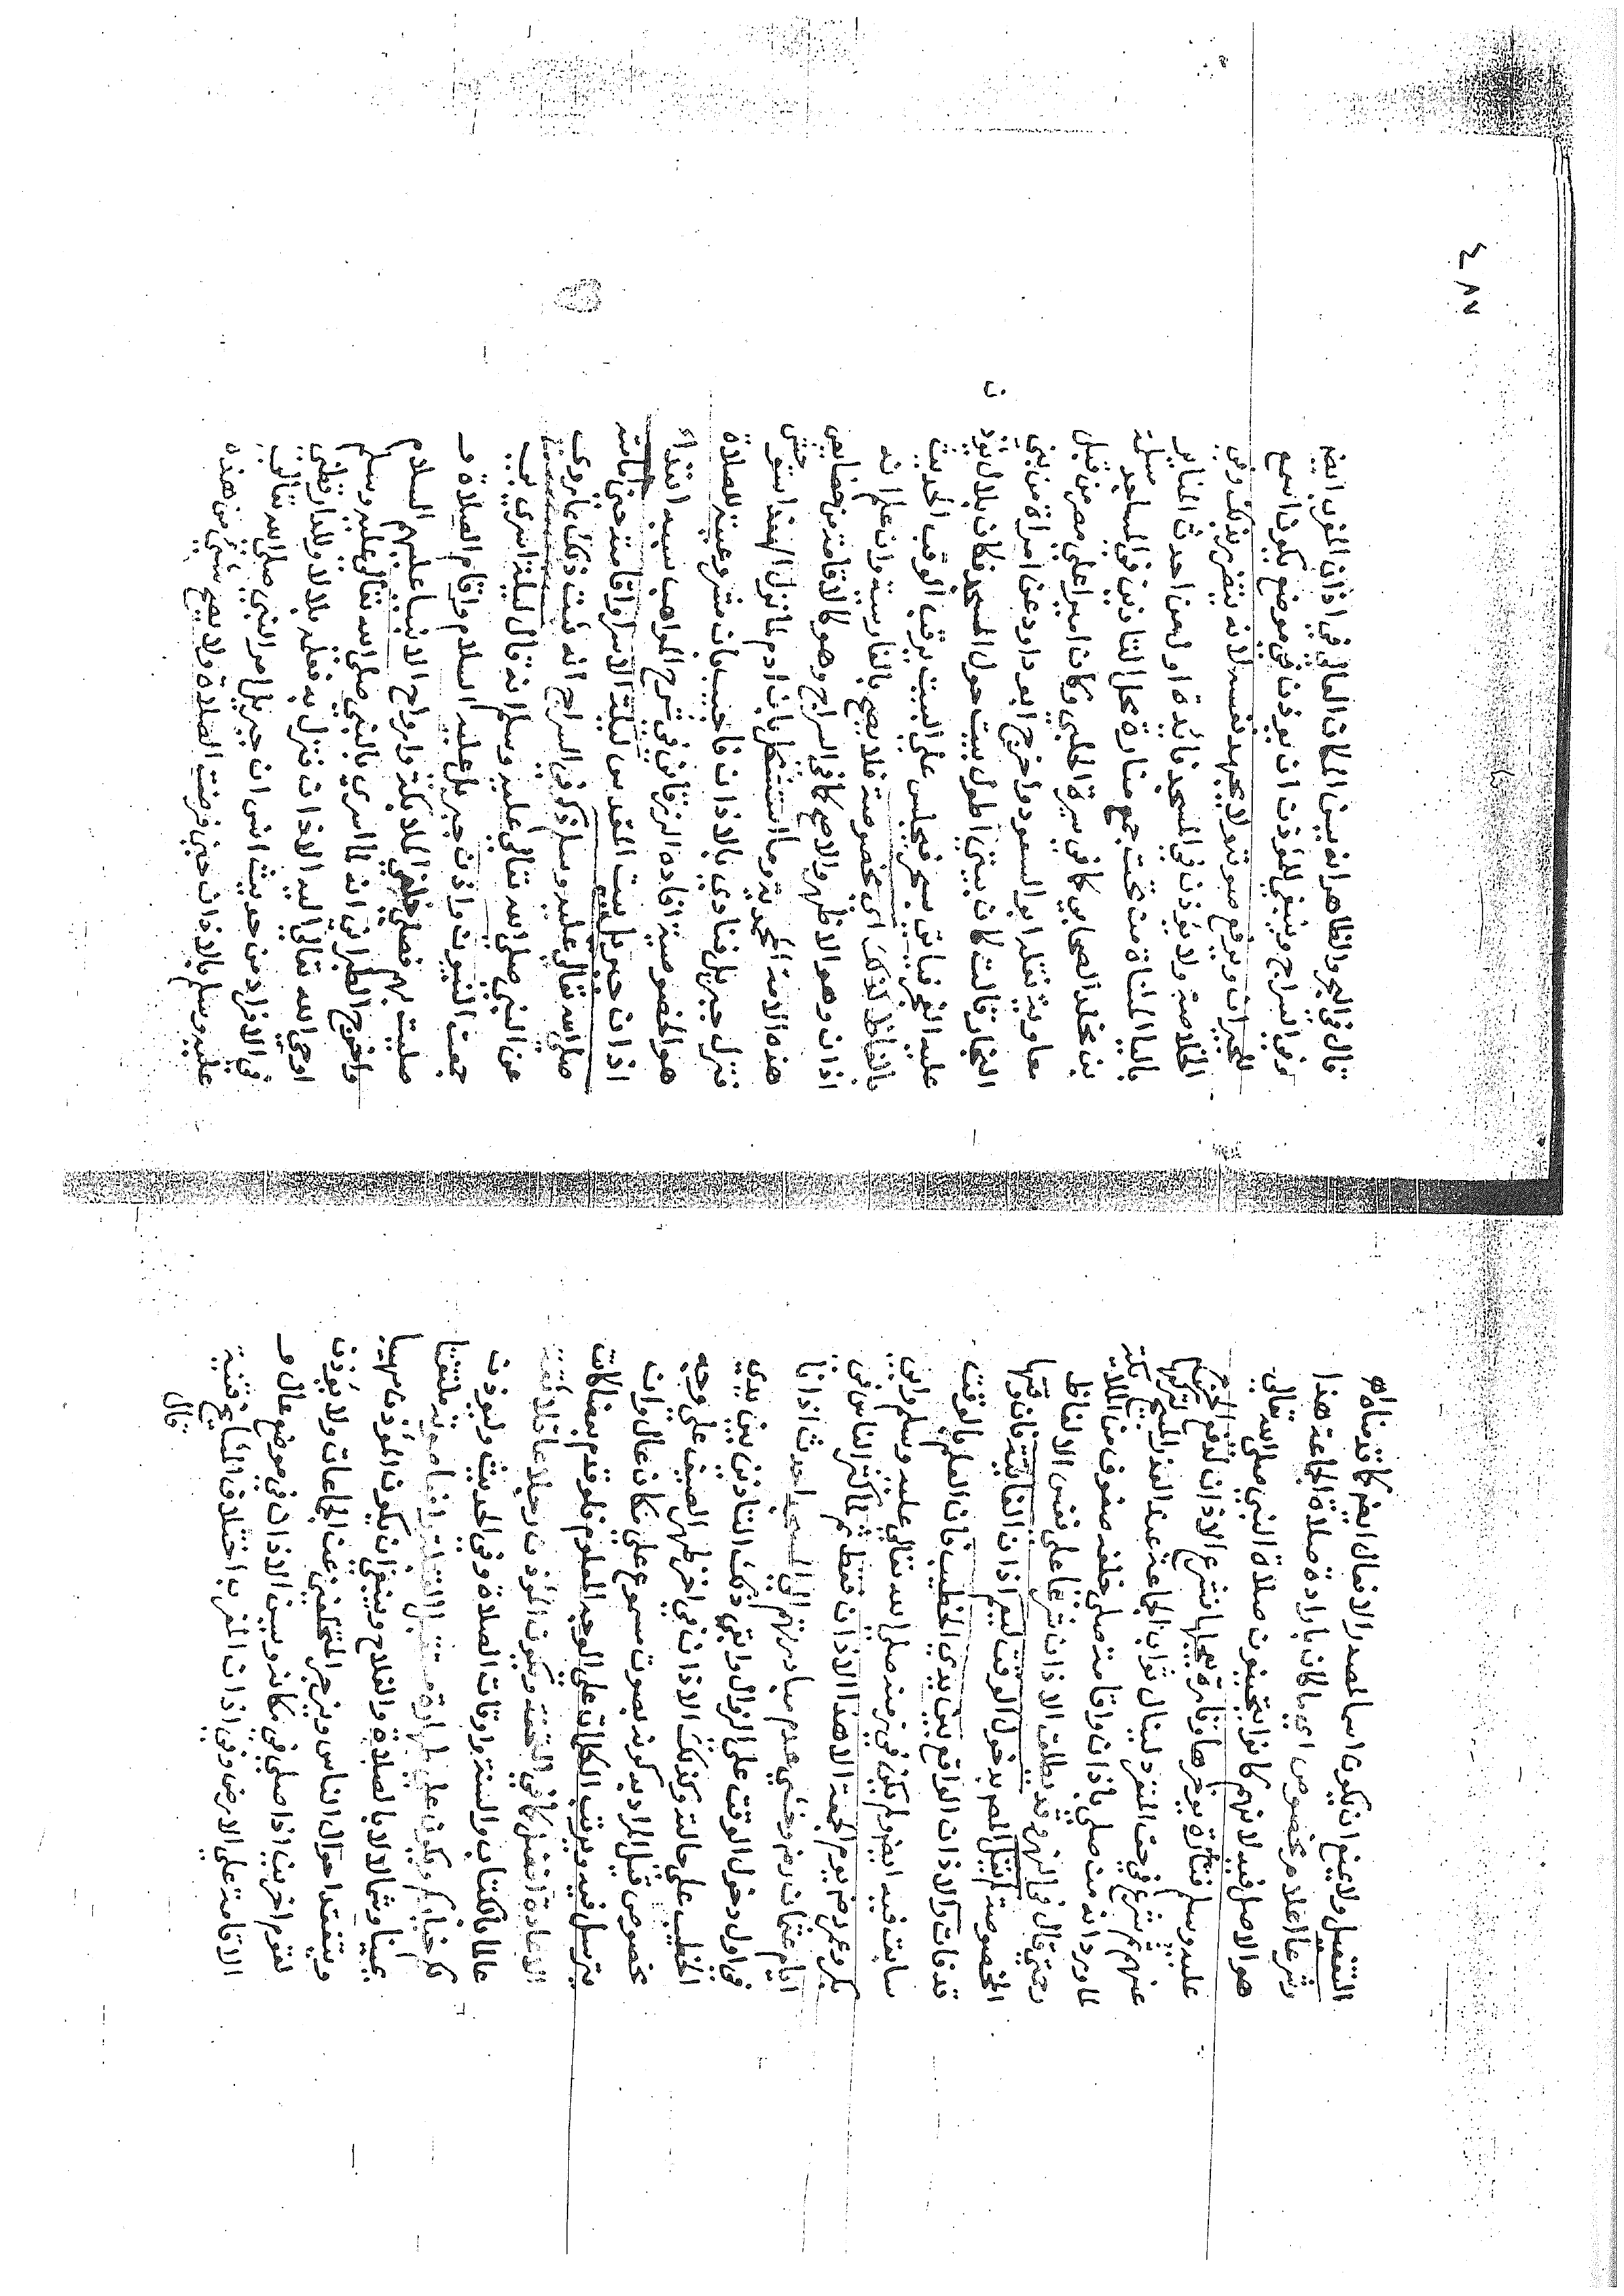 التفعيل ولا يمنع ان يكون اسما لمصدر الافعال ايضم كما قدمناه اه
وشرعا اعلام مخصوص اي بما كان بارادة صلاة الجماعة هذا
هو الاصل فيه لانهم كانوا يتحينون صلاة النبي صلى الله تعالى
عليه وسلم فتارة يؤخرها وتارة يعجلها فشرع الاذان لدفع الحرج
عنهم ثم شرع في حق المنفرد لينال ثواب الجماعة عند العذر المبيح لتركها
لما ورد انه من صلى باذان واقامة صلى خلفه صفوف من الملائكة
وحتى قال في النهر وقد يطلق الاذان شرعا على نفس الالفاظ
المخصوصة المص بدخول الوقت ليعم اذان الفائتة فان وقتها
قد فات والاذان الواقع بين يدي الخطيب فان العلم بالوقت
سابق فيه ايضم ولم يكن في زمنه صلى الله تعالى عليه وسلم وابي
بكر وعمر رضم يوم الجمعة الا هذا الاذان فقط ثم لما كثر الناس في
ايام عثمان رضم وخشي عدم مبادرتهم الى المسجد احدث اذانا
في اول دخول الوقت على الزوال وابقى ذلك التاذين بين يدي
الخطيب على حالته وكذلك الاذان في اخر ظهر الصيف على وجه
مخصوص قيل المراد به كونه بصوت مسموع على مكان عال وان
يترسل فيه ويرتب الكلمات على الوجه المعلوم فلو قدم بعض الكلمات
الاعادة افضل كما في التحفة ويكون المؤذن رجلا عاقلا ثقة
عالما بالكتاب والسنة واوقات الصلاة وفي الحديث وليؤذن
لكم خياركم ويكون على طهارة مستقبل القبلة ملتفتا
يمينا وشمالا بالصلاة والفلاح وينبغي ان يكون المؤذن مهيبا
ويتفقد احوال الناس ويزجر المتخلفين عن الجماعات ولا يؤذن
لقوم اخرين اذا صلى في مكانه ويسن الاذان في موضع عال و
الاقامة على الارض وفي اذان المغرب اختلاف المشايخ قنية
قال
قال في البحر والظاهر انه يسن المكان العالي في اذان المغرب ايضم
وفي السراج وينبغي للمؤذن ان يؤذن في موضع يكون اسمع
للجيران ويرفع صوته ولا يجهد نفسه لانه يتضرر بذلك وفي
الخلاصة ولا يؤذن في المسجد فائدة اول من احدث المناير
بالياء المثناة من تحت جمع منارة محل التاذين في المساجد مسلمة
بن مخلد الصحابي كما في سيرة الحلبي وكان اميرا على مصر من قبل
معاوية نقله ابو السعود واخرج ابو داود عن امراة من بني
النجار قالت كان بيتي اطول بيت حول المسجد فكان بلال يؤذن
عليه الفجر فياتي بسحر فيجلس على البيت يرقب الوقت الحديث
بالفاظ كذلك اي مخصوصة فلا يصح بالفارسية وان علم انه
اذان وهو الاظهر والاصح كما في السراج وهو كالاقامة من خصايص
هذه الامة المحمدية وما استشكل بان ادم لما نزل الهند استوحش
فنزل جبريل فنادى بالاذان فاجيب بان مشروعيته للصلاة
هو الخصوصية افاده الزرقاني في شرح المواهب سببه ابتداء
اذان جبريل ببيت المقدس ليلة الاسرا واقامته حين امامته
صلى الله تعالى عليه وسلم ذكر في السراج انه ثبت ذلك بما روي
عن النبي صلى الله تعالى عليه وسلم انه قال ليلة اسري بي
جمعت النبيون واذن جبريل عليه السلام واقام الصلاة و
صليت بهم فصلى خلفي الملائكة وارواح الانبيا عليهم السلام
واخرج الطبراني انه لما اسري بالنبي صلى الله تعالى عليه وسلم
اوحى الله تعالى اليه الاذان فنزل به فعلمه بلالا وللدارقطني
في الافراد من حديث انس ان جبريل امر النبي صلى الله تعالى
عليه وسلم بالاذان حين فرضت الصلاة ولا يصح شيء من هذه